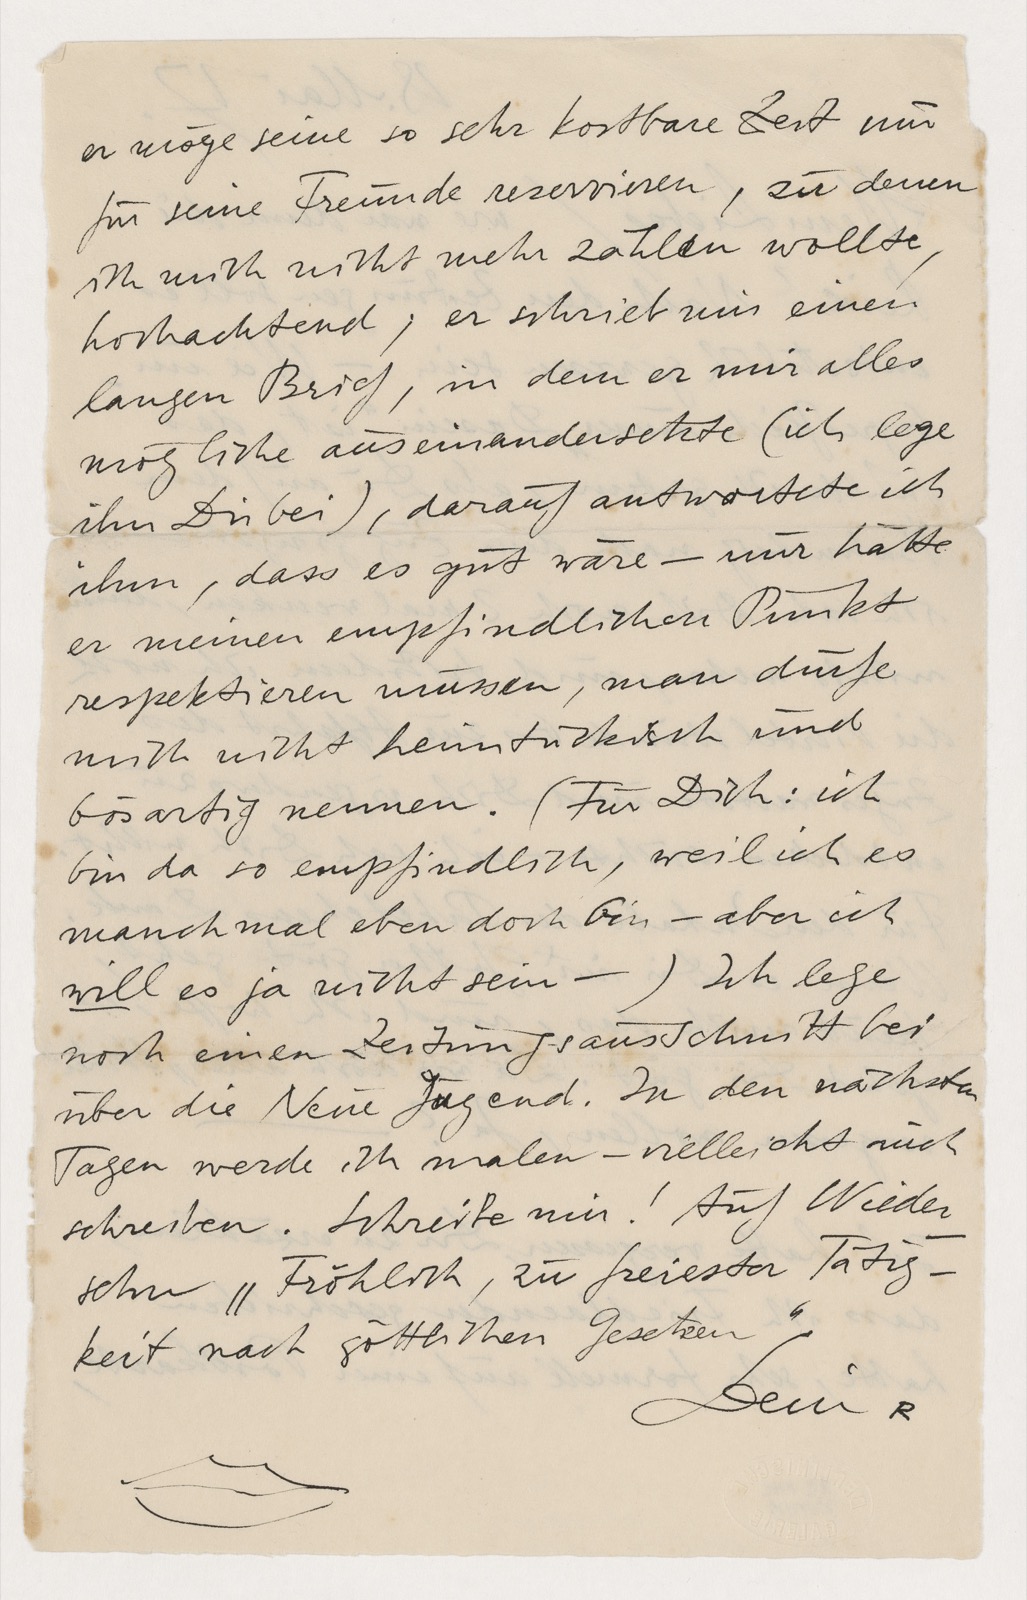 er möge seine so sehr kostbare Zeit nur
für seine Freunde reservieren, zu denen
ich mich nicht mehr zählen wollte,
hochachtend; er schrieb mir einen
langen Brief, in dem er mir alles
mögliche auseinandersetzte (ich lege
ihn Dir bei), darauf antwortete ich
ihm, dass es gut wäre — nur hätte
er meinen empfindlichen Punkt
respektieren müssen, man dürfe
mich nicht heimtückisch und
bösartig nennen. (Für Dich: ich
bin da so empfindlich, weil ich es
manchmal eben doch bin — aber ich
will es ja nicht sein —) Ich lege
noch einen Zeitungsausschnitt bei
über die Neue Jugend. In den nächsten
Tagen werde ich malen — vielleicht auch
schreiben. Schreibe mir! Auf Wieder
sehn „Fröhlich, zu freiester Tätig-
keit nach göttlichen Gesetzen“
Dein R